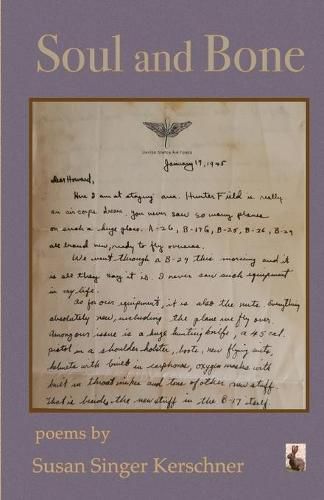 Soul and Bone
UNITED STATES AIR FORCES
January 19, 1945
Dear Howard,
Here I am at staging area. Hunter Field is really
an air corps dream. You never saw so many planes
on such a huge place. A-26, B-17G, B-25, B-26, B-29
are brand new, ready to fly overseas.
We went through a B-29 this morning and it
is all they say it is. I never saw such equipment
in my life.
As for our equipment, it is also the nuts. Everything
absolutely new, including the plane we fly over.
Among our issue is a huge hunting knife, a 45 cal.
pistol in a shoulder holster, boots, new flying suits,
helmets with built in earphones, oxygen masks with
built in throat mikes and tons of other new stuff.
That is besides the new stuff in the B-17 itself.
poems by
Susan Singer Kerschner